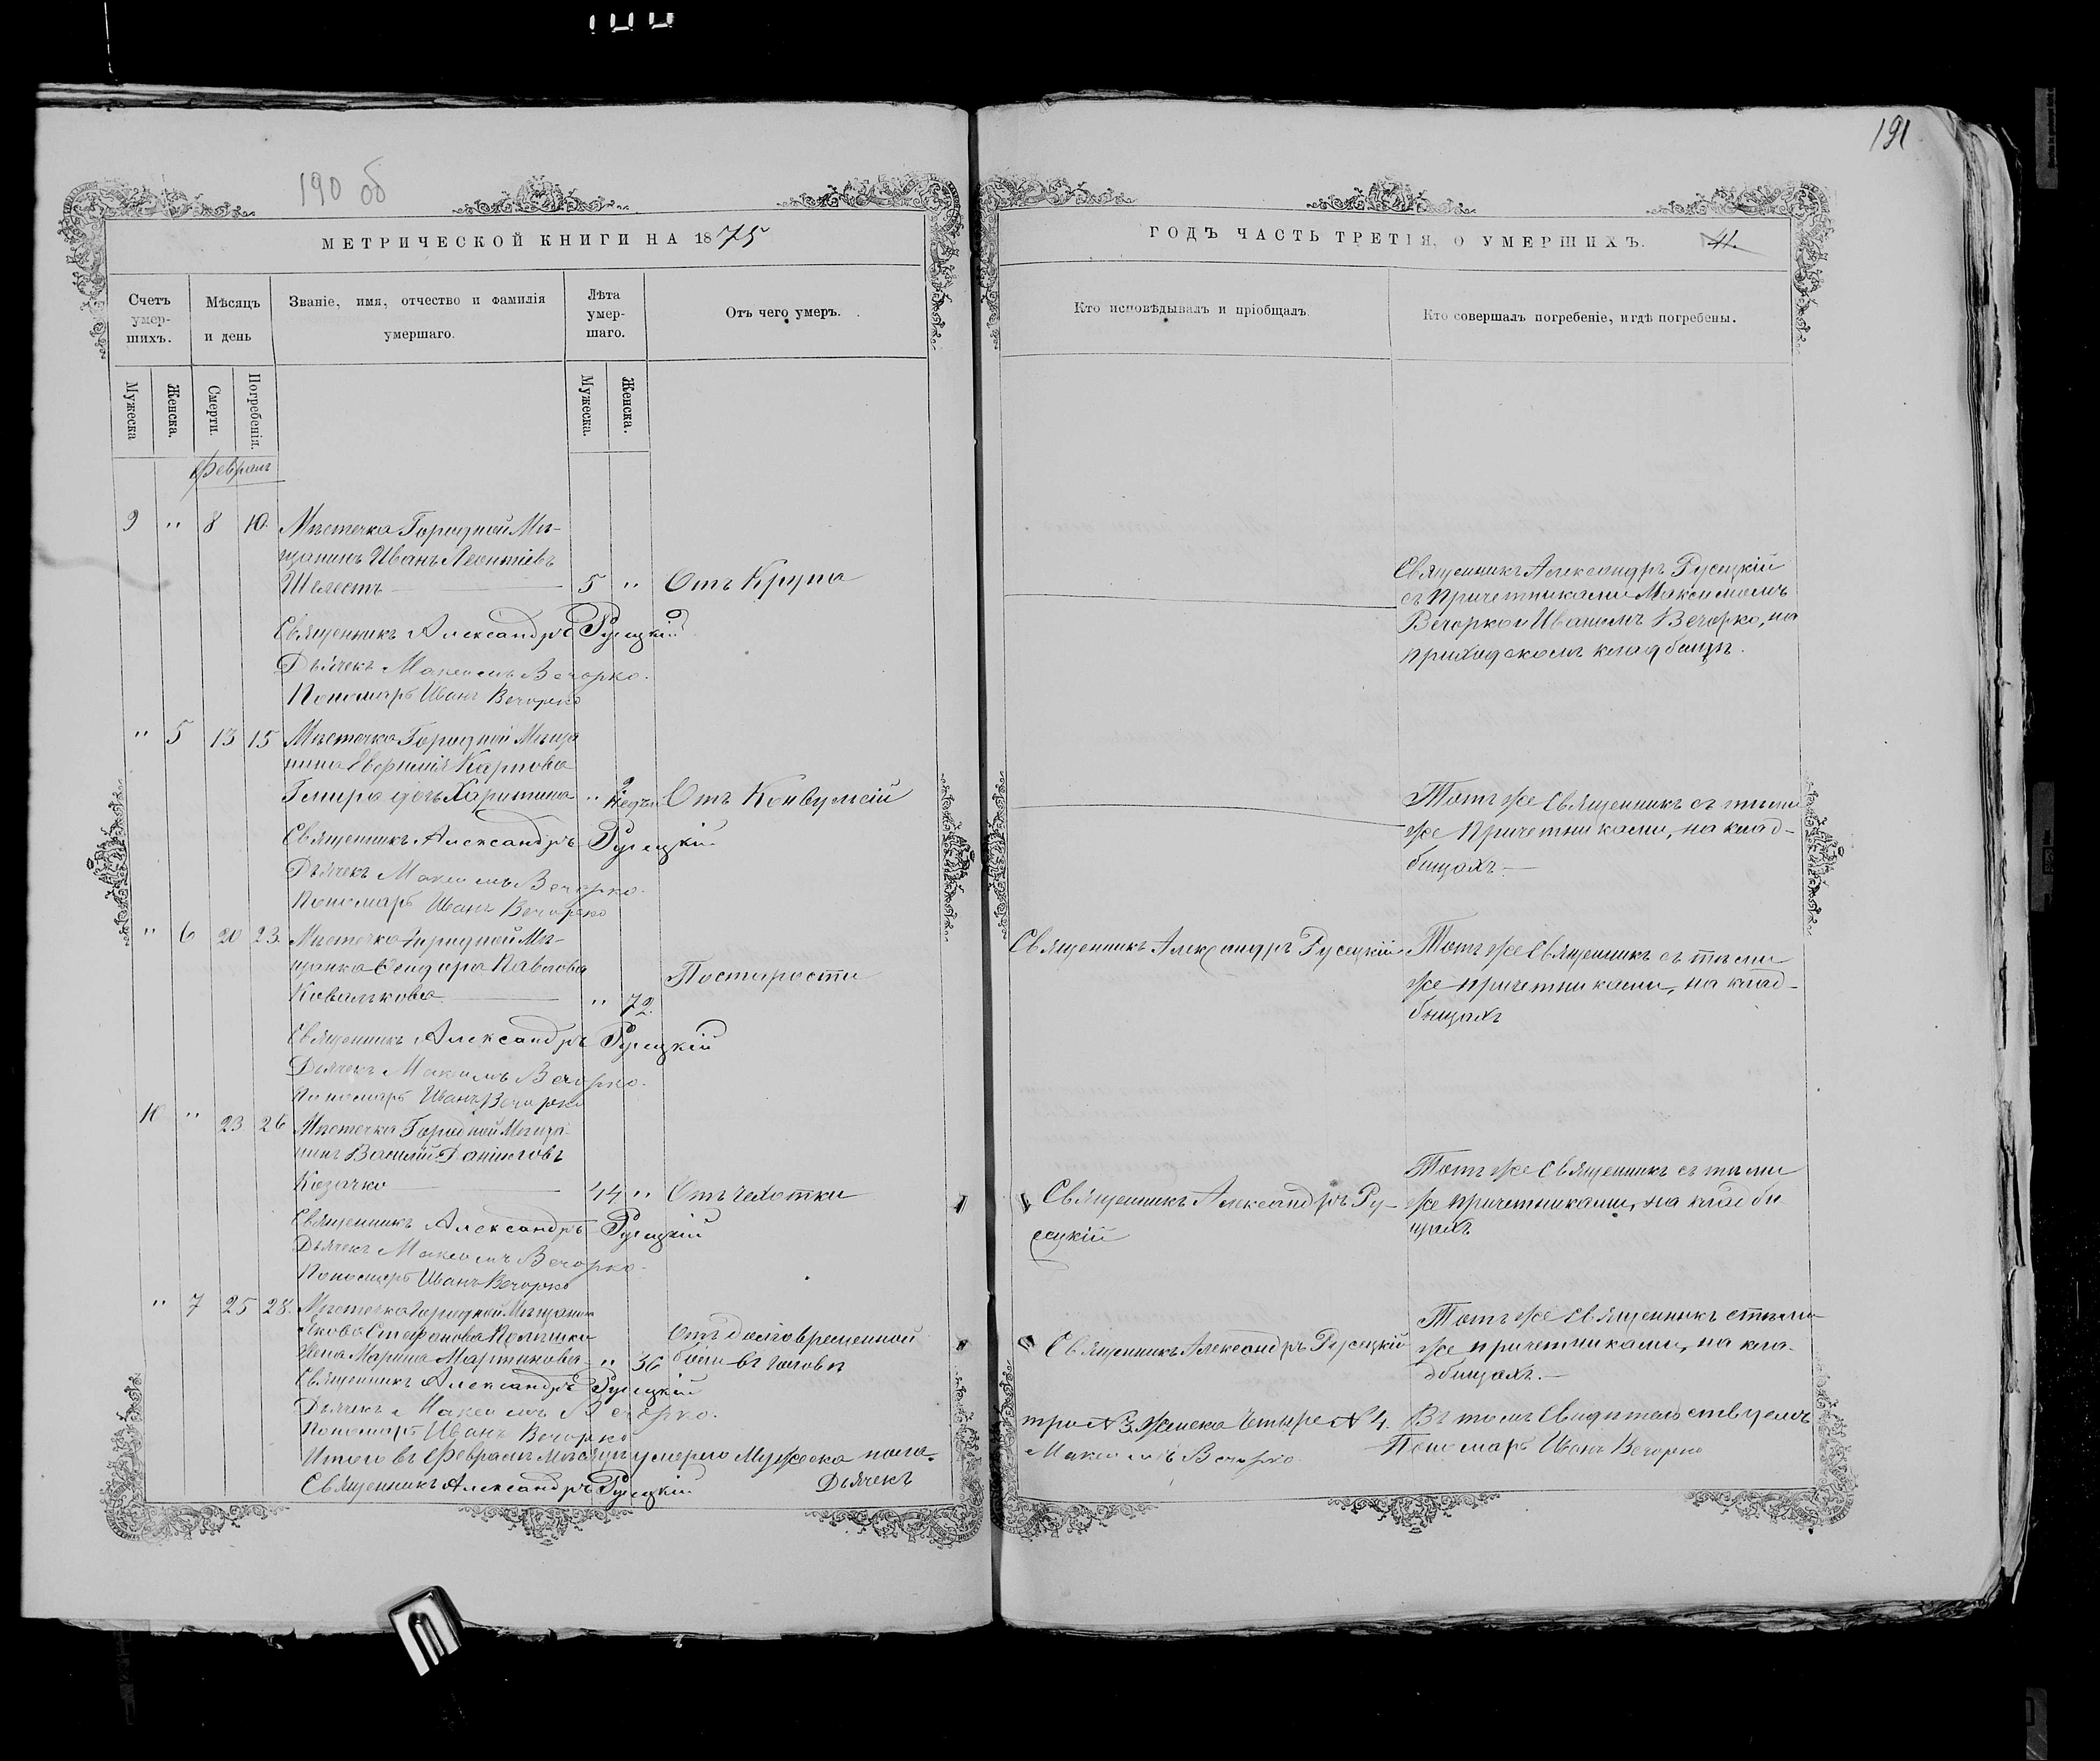 190 об
191
МЕТРИЧЕСКОЙ КНИГИ НА 1875
ГОДЪ ЧАСТЬ ТРЕТІЯ, О УМЕРШИХЪ.
41.
Счетъ умер-шихъ.
Мѣсяцъ и день
Званіе, имя, отчество и фамилія умершаго.
Лѣта умер-шаго.
Отъ чего умеръ.
Кто исповѣдывалъ и пріобщалъ.
Кто совершалъ погребеніе, и гдѣ погребены.
Мужеска
Женска.
Смерти.
Погребенія.
Мужеска.
Женска.
Февраль
9 " 8 10. Мѣстечка Городной Мѣ-
щанинъ Иванъ Леонтіевъ
Шелестъ — 5 " Отъ Крупа
Священникъ Александръ Русецкій
съ причетниками Максимомъ
Вечорко и Иваномъ Вечорко, на
приходскомъ кладбищѣ.
Священникъ Александръ Русецкій
Дьячекъ Максимъ Вечорко.
Пономарь Иванъ Вечорко
" 5 13 15 Мѣстечка Городной Мѣща
нина Карпова
дочь Харитина " Недѣли Отъ Конвульсій
Тотъ же Священникъ съ тѣми
же причетниками, на клад-
бищахъ.—
Священникъ Александръ Русецкій
Дьячекъ Максимъ Вечорко.
Пономарь Иванъ Вечорко
" 6 20 23. Мѣстечка Городной Мѣ-
щанка Ѳеодора Павлова
Ковалькова — " 72. По старости
Священникъ Александръ Русецкій
Тотъ же Священникъ съ тѣми
же причетниками, на клад-
бищахъ
Священникъ Александръ Русецкій
Дьячекъ Максимъ Вечорко.
Пономарь Иванъ Вечорко
10 " 23 26 Мѣстечка Городной Мѣща-
нинъ Василій Даниловъ
Козачко — 44 " Отъ Чахотки
Священникъ Александръ Ру-
сецкій
Тотъ же Священникъ съ тѣми
же причетниками, на кладби
щахъ
Священникъ Александръ Русецкій
Дьячекъ Максимъ Вечорко.
Пономарь Иванъ Вечорко
" 7 25 28. Мѣстечка Городной Мѣщанина
Якова Стефанова
жена Марина Мартинова — " 36 Отъ долговременной
боли въ головѣ
Священникъ Александръ Русецкій
Тотъ же Священникъ съ тѣми
же причетниками, на кла-
дбищахъ.—
Священникъ Александръ Русецкій
Дьячекъ Максимъ Вечорко.
Пономарь Иванъ Вечорко
Итого въ Февралѣ Мѣсяцѣ умерло Мужеска пола
три № 3. Женска Четыре № 4. Въ томъ Свидѣтельствуемъ
Священникъ Александръ Русецкій Дьячекъ
Максимъ Вечорко. Пономарь Иванъ Вечорко